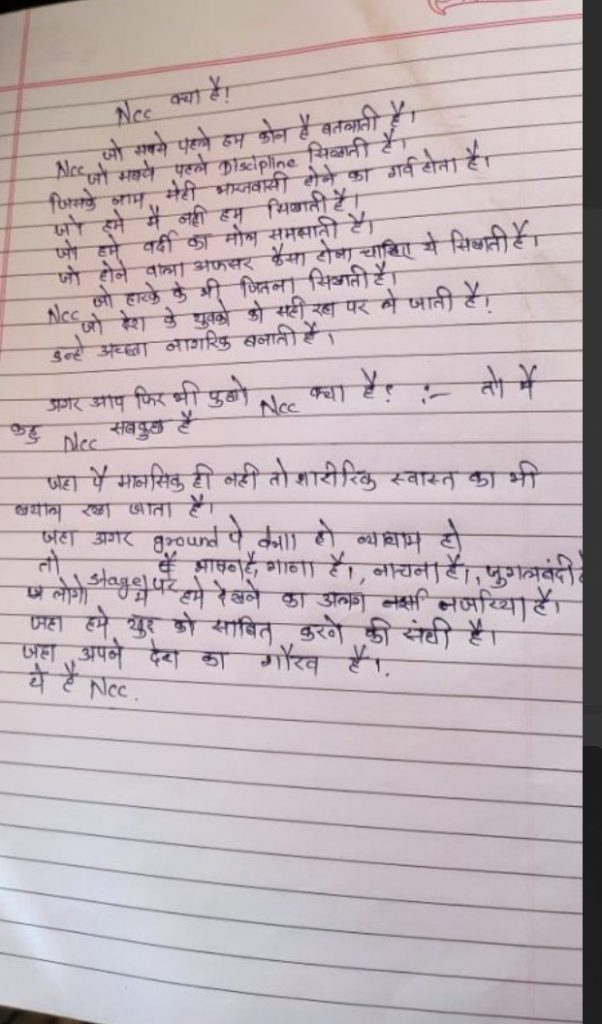 Ncc क्या है!
Ncc जो सबसे पहले हम कोन है बतलाती है।
जो सबसे पहले Discipline सिखाती है।
जिसके नाम मेही भारतवासी होने का गर्व होता है।
जो हमे मै नही हम सिखाती है।
जो हमे वर्दी का मोल समझाती है।
जो होने वाला अफसर कैसा होना चाहिए ये सिखाती है।
Ncc जो हारके के भी जितना सिखाती है।
जो देश के युवको को सही रहा पर ले जाती है!
उन्हे अच्छा नागरिक बनाती है।
अगर आप फिर भी पुछो Ncc क्या है? :- तो मै
कहु Ncc सबकुछ है
जहा पै मानसिक ही नही तो शारीरिक स्वास्त का भी
खयाल रखा जाता है।
जहा अगर ground पे हो व्यायाम हो
तो stage पर भाषन है, गाना है।, नाचना है।, जुगलबंदी है
लोगो मे हमे देखने का अलग नजरिया है।
जहा हमे खुद को साबित करने की संधी है।
जहा अपने देश का गौरव है।
ये है Ncc.